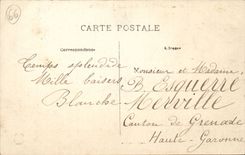 66
CARTE POSTALE
Correspondance
Adresse
Temps splendide
Mille baisers
Blanche
Monsieur et Madame
B. Esquerré
Merville
Canton de Grenade
Haute-Garonne